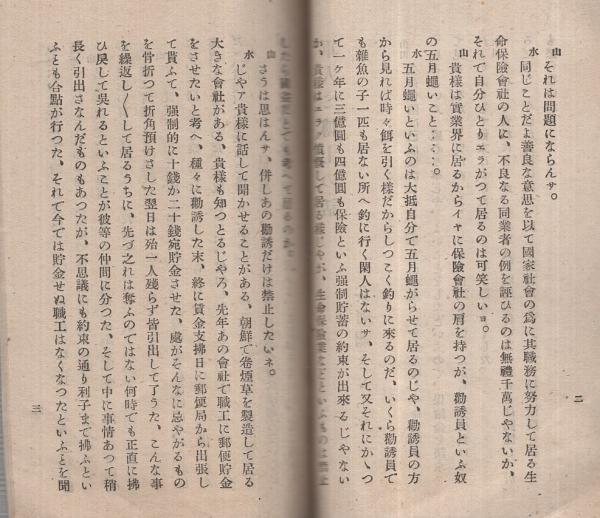 山　それは問題にならんサ。
水　同じことだよ善良な意思を以て國家社會の爲に其職務に努力して居る生
命保險會社の人に、不良なる同業者の例を誣ひるのは無禮千萬じやないか、
それで自分ひとりエラがつて居るのは可笑しいョ。
山　貴様は實業界に居るからイヤに保險會社の肩を持つが、勸誘員といふ奴
の五月蠅いこと‥‥。
水　五月蠅いといふのは大抵自分で五月蠅がらせて居るのじや、勸誘員の方
から見れば時々餌を引く様だからしつこく釣りに來るのだ、いくら勸誘員で
も雜魚の子一匹も居ない所へ釣に行く閑人はないサ、そして又それにかゝつ
て一ケ年に三億圓も四億圓も保險といふ强制貯蓄の約束が出來るじやない
か、貴様はエラク憤慨して居る様じやが、生命保險業
二
山　さうは思はんサ、併しあの勸誘だけは禁止したいネ。
水　じやア貴様に話して聞かせることがある、朝鮮で卷煙草を製造して居る
大きな會社がある、貴様も知つとるじやろ、先年あの會社で職工に郵便貯金
をさせたいと考へ、種々に勸誘した末、終に賃金支拂日に郵便局から出張し
て貰ふて、强制的に十錢か二十錢宛貯金させた、處がそんなに忌やがるもの
を骨折つて折角預けさした翌日は殆一人殘らず皆引出して了うた、こんな事
を繰返し〱して居るうちに、先づ之れは奪ふのではない何時でも正直に拂
ひ戻して吳れるといふことが彼等の仲間に分つた、そして中に事情あつて稍
長く引出さなんだものもあつたが、不思議にも約束の通り利子まで拂ふとい
ふとも合點が行つた、それで今では貯金せぬ職工はなくなつたといふとを聞
三